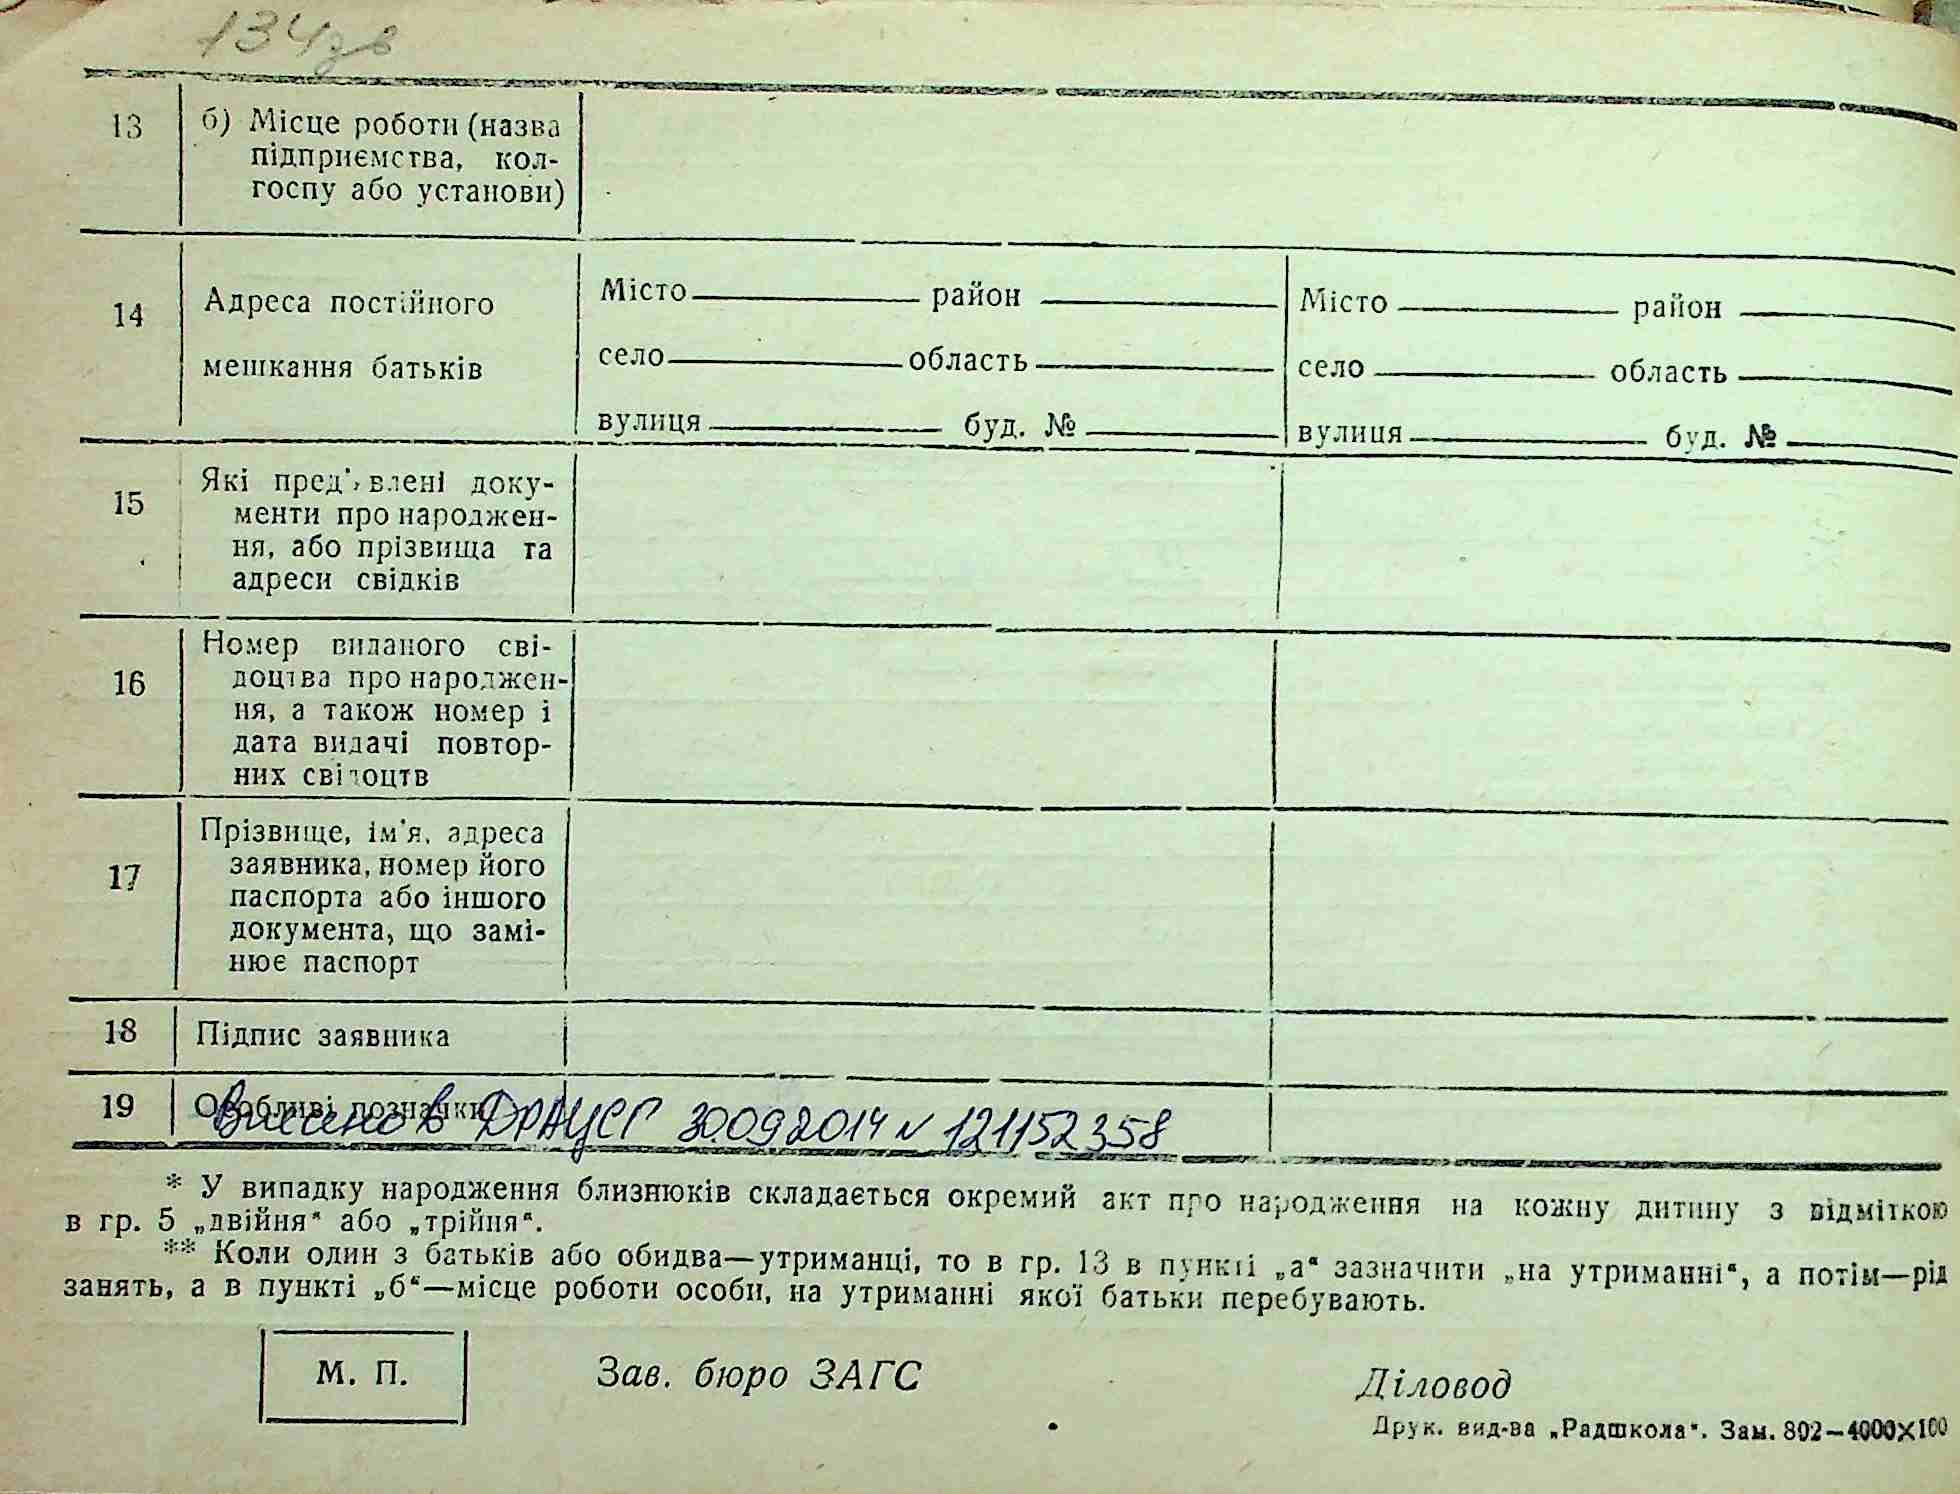 134зв
13
б) Місце роботи (назва
підприємства, кол-
госпу або установи)
14
Адреса постійного
мешкання батьків
Місто район
село область
вулиця буд. №
Місто район
село область
вулиця буд. №
15
Які пред'явлені доку-
менти про народжен-
ня, або прізвища та
адреси свідків
16
Номер виданого сві-
доцтва про народжен-
ня, а також номер і
дата видачі повтор-
них свідоцтв
17
Прізвище, ім'я, адреса
заявника, номер його
паспорта або іншого
документа, що замі-
нює паспорт
18
Підпис заявника
19
Особливі позначки
Внесено в ДРАЦСГ 30.09.2014 N 121152358
* У випадку народження близнюків складається окремий акт про народження на кожну дитину з відміткою
в гр. 5 „двійня“ або „трійня“.
** Коли один з батьків або обидва—утриманці, то в гр. 13 в пункті „а“ зазначити „на утриманні“, а потім—рід
занять, а в пункті „б“—місце роботи особи, на утриманні якої батьки перебувають.
М. П.
Зав. бюро ЗАГС
Діловод
Друк. вид-ва „Радшкола“. Зам. 802—4000×100